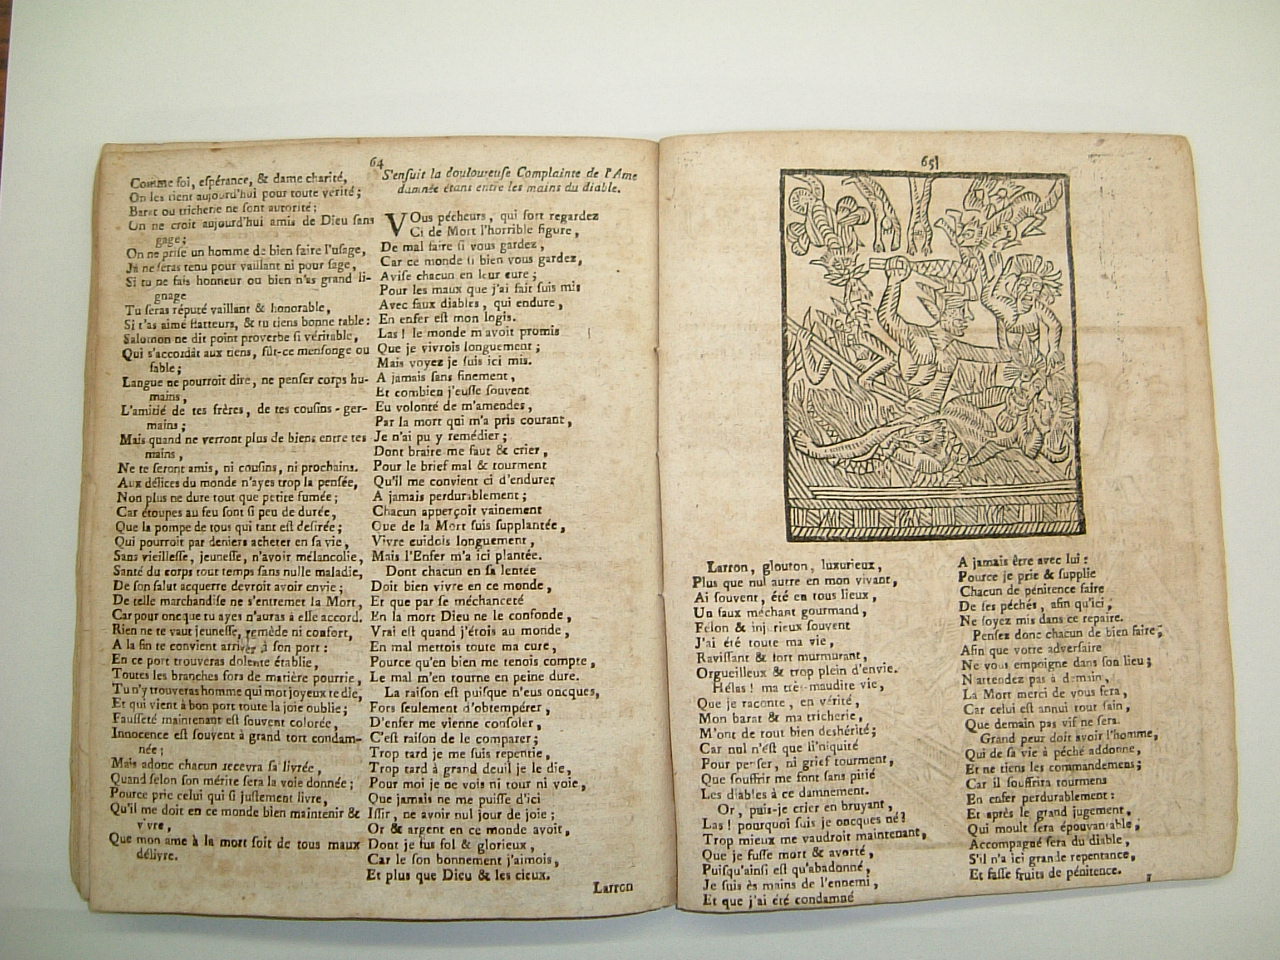 64
Comme foi, espérance, & dame charité,
On les tient aujourd'hui pour toute vérité;
Barat ou tricherie ne sont autorité;
Un ne croit aujourd'hui amis de Dieu sans
gage;
On ne prise un homme de bien faire l'usage,
Ja ne seras tenu pour vaillant ni pour sage,
Si tu ne fais honneur ou bien n'as grand li-
gnage
Tu seras réputé vaillant & honorable,
Si t'as aimé flatteurs, & tu tiens bonne table:
Salomon ne dit point proverbe si véritable,
Qui s'accordât aux tiens, fût-ce mensonge ou
fable;
Langue ne pourroit dire, ne penser corps hu-
mains,
L'amitié de tes frères, de tes cousins-ger-
mains;
Mais quand ne verront plus de biens entre tes
mains,
Ne te seront amis, ni cousins, ni prochains.
Aux délices du monde n'ayes trop la pensée,
Non plus ne dure tout que petite fumée;
Car étoupes au feu sont si peu de durée,
Que la pompe de tous qui tant est desirée;
Qui pourroit par deniers acheter en sa vie,
Sans vieillesse, jeunesse, n'avoir mélancolie,
Santé du corps tout temps sans nulle maladie,
De son salut acquerre devroit avoir envie;
De telle marchandise ne s'entremet la Mort,
Car pour oncque tu ayes n'auras à elle accord.
Rien ne te vaut jeunesse, remède ni confort,
A la fin te convient arriver à son port:
En ce port trouveras dolente établie,
Toutes les branches sors de matière pourrie,
Tu n'y trouveras homme qui mot joyeux te die,
Et qui vient à bon port toute la joie oublie;
Fausseté maintenant est souvent colorée,
Innocence est souvent à grand tort condam-
née;
Mais adonc chacun recevra sa livrée,
Quand selon son mérite sera la voie donnée;
Pource prie celui qui si justement livre,
Qu'il me doit en ce monde bien maintenir &
vivre,
Que mon ame à la mort soit de tous maux
délivre.
S'ensuit la douloureuse Complainte de l'Ame
damnée étant entre les mains du diable.
VOus pécheurs, qui fort regardez
Ci de Mort l'horrible figure,
De mal faire si vous gardez,
Car ce monde si bien vous gardez,
Avise chacun en leur cure;
Pour les maux que j'ai fait suis mis
Avec faux diables, qui endure,
En enfer est mon logis.
Las! le monde m'avoit promis
Que je vivrois longuement;
Mais voyez je suis ici mis.
A jamais sans finement,
Et combien j'eusse souvent
Eu volonté de m'amendes,
Par la mort qui m'a pris courant,
Je n'ai pu y remédier;
Dont braire me faut & crier,
Pour le brief mal & tourment
Qu'il me convient ci d'endurer
A jamais perdurablement;
Chacun apperçoit vainement
Que de la Mort suis supplantée,
Vivre cuidois longuement,
Mais l'Enfer m'a ici plantée.
Dont chacun en sa lentée
Doit bien vivre en ce monde,
Et que par se méchanceté
En la mort Dieu ne le confonde,
Vrai est quand j'étois au monde,
En mal mettois toute ma cure,
Pource qu'en bien me tenois compte,
Le mal m'en tourne en peine dure.
La raison est puisque n'eus oncques,
Fors seulement d'obtempérer,
D'enfer me vienne consoler,
C'est raison de le comparer;
Trop tard je me suis repentie,
Trop tard à grand deuil je le die,
Pour moi je ne vois ni tour ni voie,
Que jamais ne me puisse d'ici
Issir, ne avoir nul jour de joie;
Or & argent en ce monde avoit,
Dont je fus fol & glorieux,
Car le son bonnement j'aimois,
Et plus que Dieu & les cieux.
Larron
65
Larron, glouton, luxurieux,
Plus que nul autre en mon vivant,
Ai souvent, été en tous lieux,
Un faux méchant gourmand,
Felon & injurieux souvent
J'ai été toute ma vie,
Ravissant & fort murmurant,
Orgueilleux & trop plein d'envie.
Hélas! ma très-maudite vie,
Que je raconte, en vérité,
Mon barat & ma tricherie,
M'ont de tout bien deshérité;
Car nul n'est que l'iniquité
Pour penser, ni grief tourment,
Que souffrir me font sans pitié
Les diables à ce damnement.
Or, puis-je crier en bruyant,
Las! pourquoi suis je oncques né?
Trop mieux me vaudroit maintenant,
Que je fusse mort & avorté,
Puisqu'ainsi est qu'abadonné,
Je suis ès mains de l'ennemi,
Et que j'ai été condamné
A jamais être avec lui:
Pource je prie & supplie
Chacun de pénitence faire
De ses péchés, afin qu'ici,
Ne soyez mis dans ce repaire.
Pensez donc chacun de bien faire,
Afin que votre adversaire
Ne vous empoigne dans son lieu;
N'attendez pas à demain,
La Mort merci de vous fera,
Car celui est annui tout sain,
Que demain pas vif ne sera.
Grand peur doit avoir l'homme,
Qui de sa vie à péché addonne,
Et ne tiens les commandemens;
Car il souffrira tourmens
En enfer perdurablement:
Et après le grand jugement,
Qui moult sera épouvantable;
Accompagné sera du diable,
S'il n'a ici grande repentance,
Et fasse fruits de pénitence.